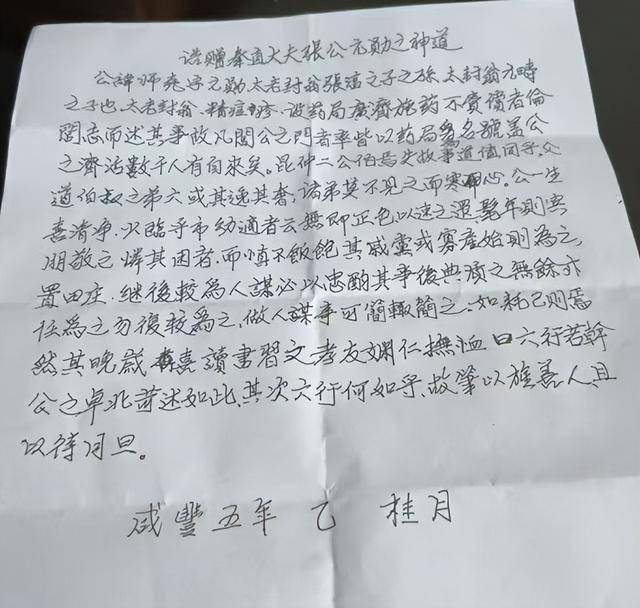 诰赠奉直大夫张公元勋之神道
公諱师尭字元勋,太老封翁張滀之子之孫,太封翁元時
之子也,太老封翁,精痘疹,设药局廣濟施药不責償者倫
閭志而述其事故凡閭公之門者率皆以药局為名號盖公
之濟活数千人有自來矣。昆仲二公伯考失故事道值同手,公
道伯叔之第六或其逸其奢,诸弟莫不見之而寒心。公一生
喜清净,火臨于市幼適者云無即正色以速之還髦年则实
朋敬之憐其困者,而慎不飯飽其戚党或寡産始则為之,
置田庄,继後較為人謀必以忠酌其事後典濆之無餘亦
任為之勿復較為之,做人謀事可简輙簡之,如耗己则焉
然其晚歲喜讀書習文孝友姻仁撫恤口六行若幹
公之卓北昔述如此,其次六行何如乎,故筆以旌善人,且
以待月旦。
咸豐五年 乙 桂月